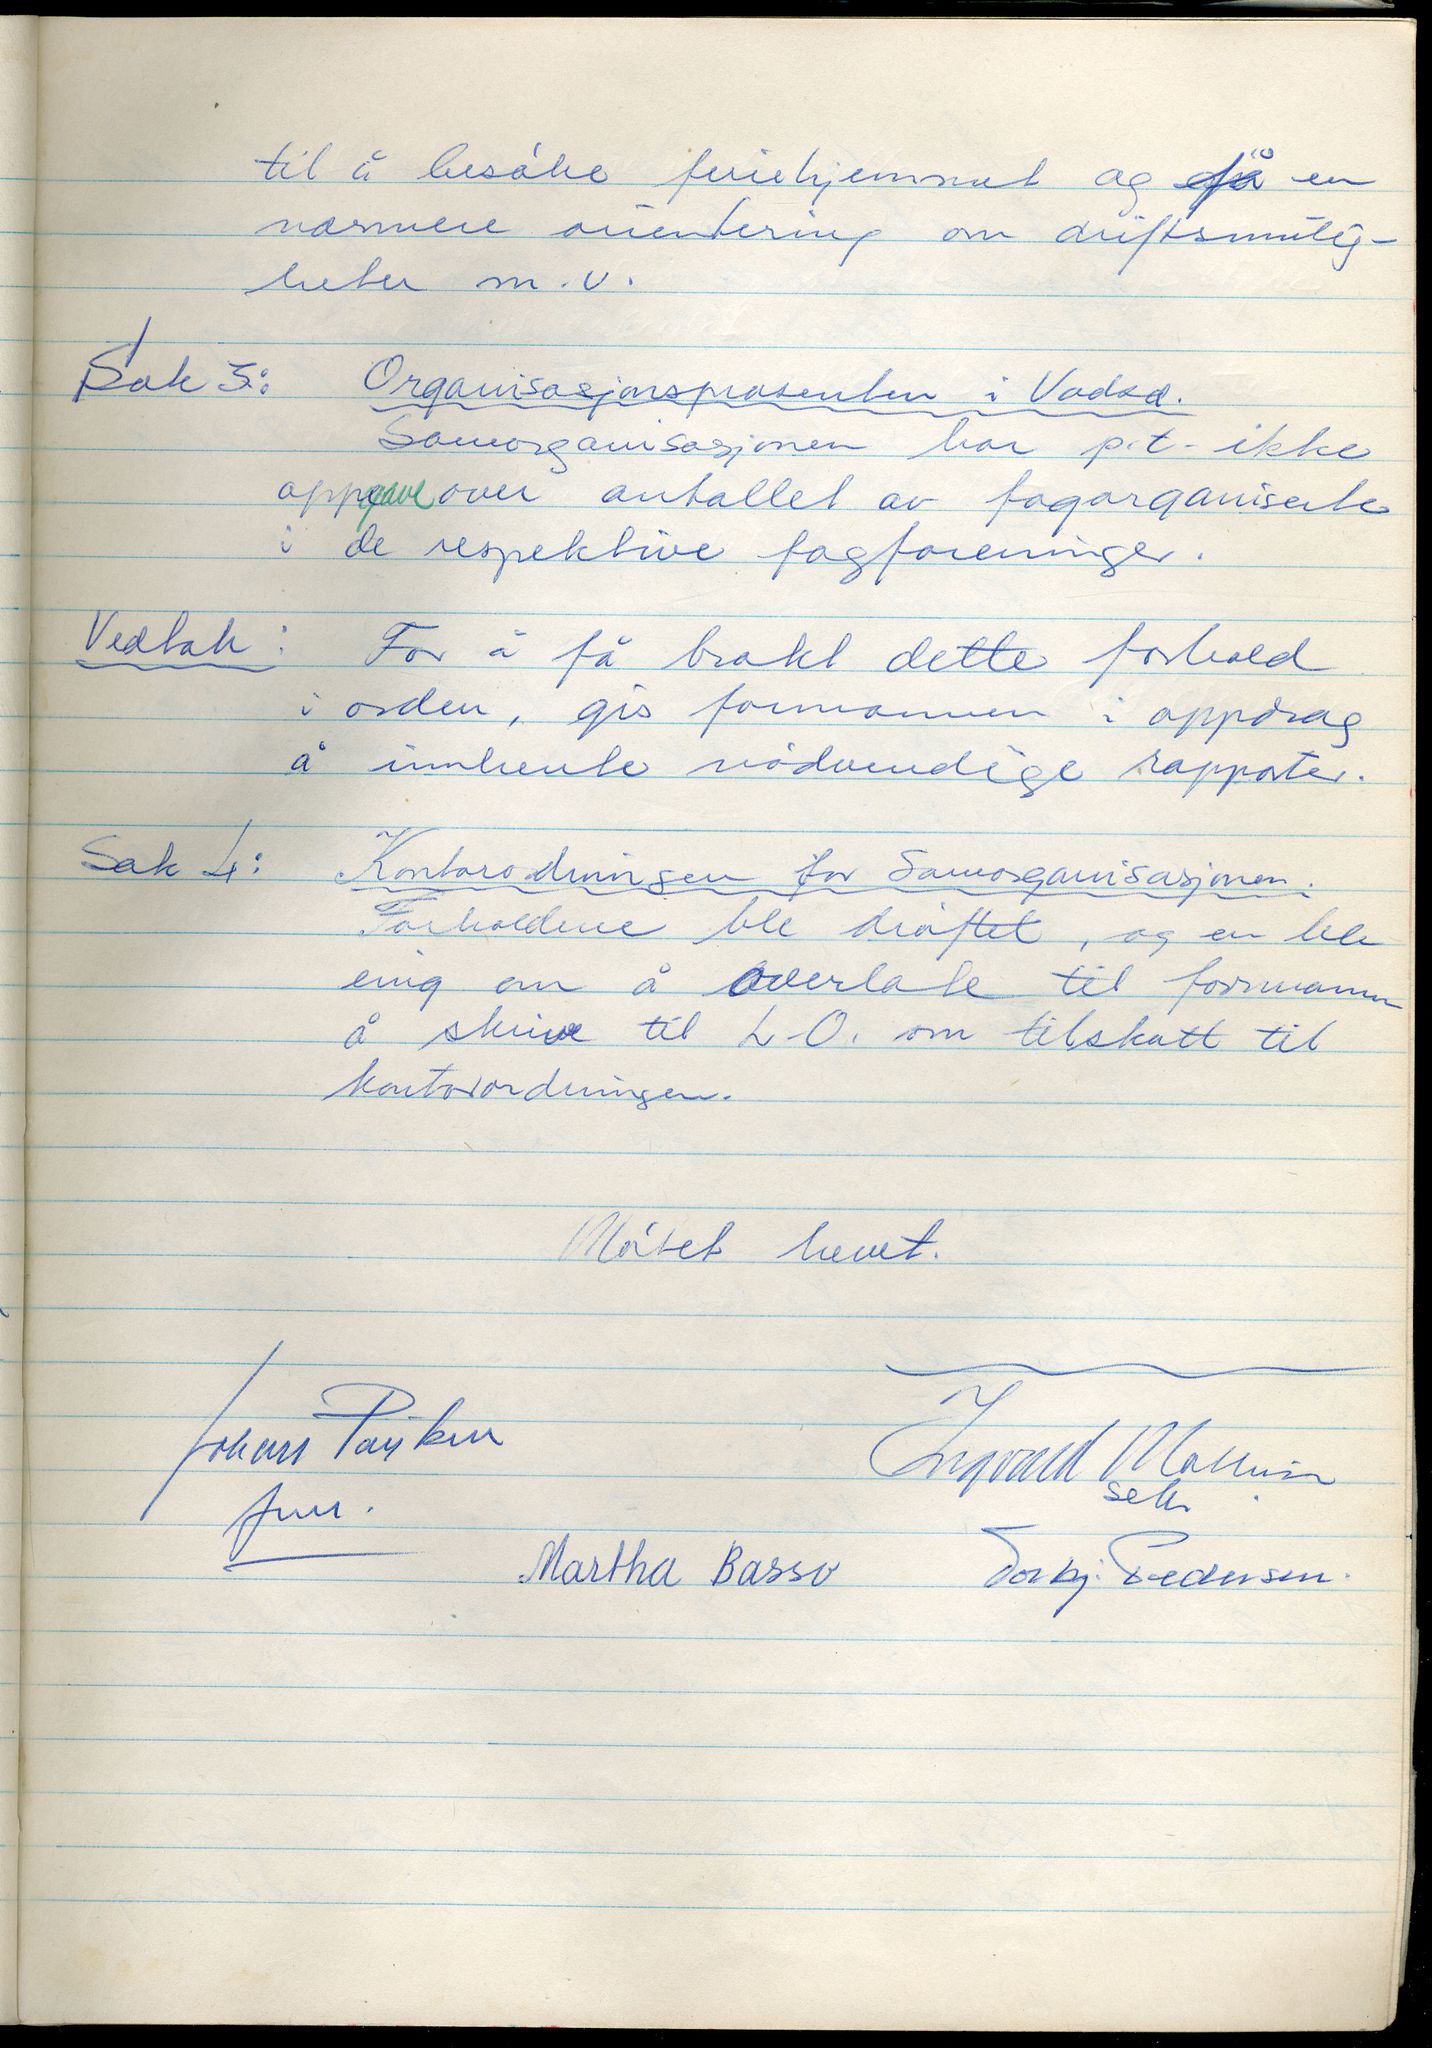 til å besøke feriehjemmet og få en
nærmere orientering om driftsmulig-
heter m.v.
Sak 3: Organisasjonsprosenten i Vadsø.
Samorganisasjonen har p.t. ikke
oppgave over antallet av fagorganiserte
i de respektive fagforeninger.
Vedtak: For å få brakt dette forhold
i orden, gis formannen i oppdrag
å innhente nødvendige rapporter.
Sak 4: Kontorordningen for Samorganisasjonen.
Forholdene ble drøftet, og en ble
enig om å overlate til formannen
å skrive til L.O. om tilskott til
kontorordningen.
Møtet hevet.
Johans
fmr.
Ingvald
sekr.
Martha Basso Torbj. Pedersen.